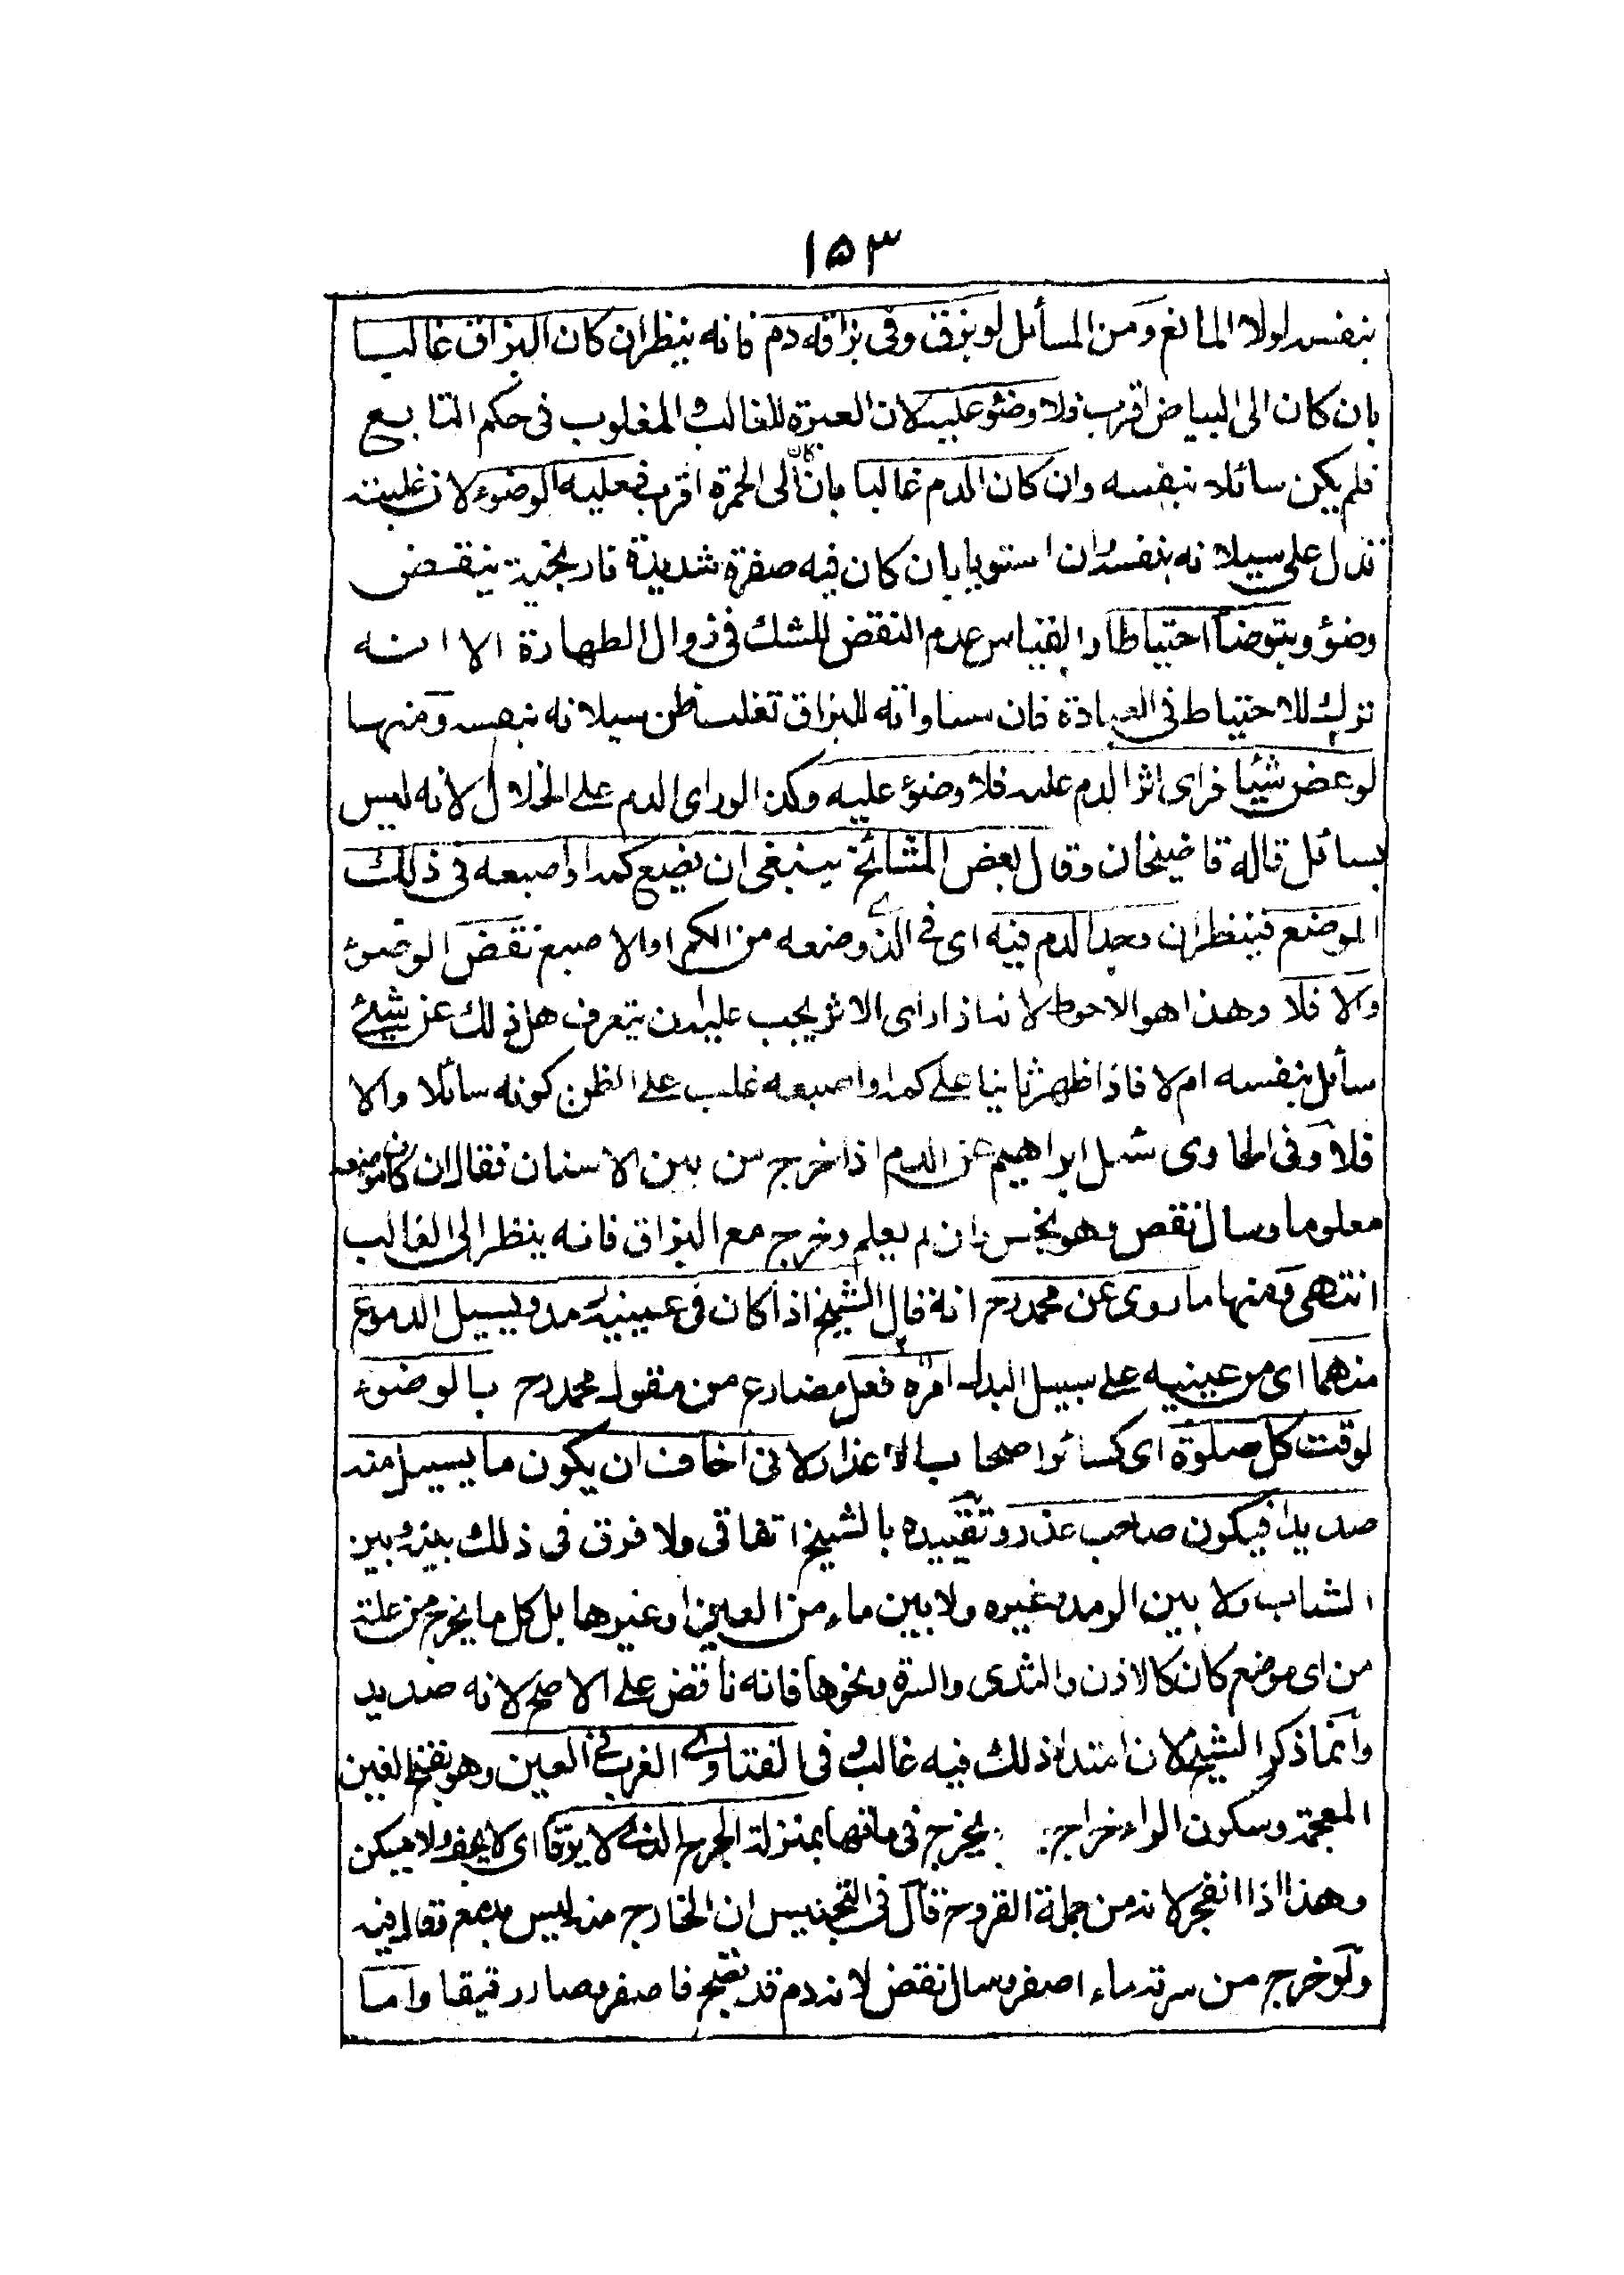 ١٥٣
بنفسه لولا المانع ومن المسائل لو بزق وفى بزاقه دم فانه ينظر ان كان البزاق غالبا
بان كان الى البياض اقرب فلا وضوء عليه لان العبرة للغالب والمغلوب فى حكم التابع
فلم يكن سائلا بنفسه وان كان الدم غالبا بان كان الى الحمرة اقرب فعليه الوضوء لان غلبته
تدل على سيلانه بنفسه وان استويا بان كان فيه صفرة شديدة نارنجية ينقض
وضوؤ ويتوضأ احتياطا والقياس عدم النقض للشك فى زوال الطهارة الا انه
ترك للاحتياط فى العبادة فان مساواته للبزاق تغلب ظن سيلانه بنفسه ومنها
لو عض شيئا فراى اثر الدم عليه فلا وضوء عليه وكذا لو راى الدم على الخلال لانه ليس
بسائل قاله قاضيخان وقال بعض المشائخ ينبغى ان يضع كمه او اصبعه فى ذلك
الموضع فينظر ان وجد الدم فيه اى فى الذى وضعه من الكم او الاصبع نقض الوضوء
والا فلا وهذا هو الاحوط لانه اذا راى الاثر يجب عليه ان يتعرف هل ذلك عن شيئ
سائل بنفسه ام لا فاذا ظهر ثانيا على كمه او اصبعه غلب على الظن كونه سائلا والا
فلا وفى الحاوى سئل ابراهيم عن الدم اذا خرج من بين الاسنان فقال ان كان موضعه
معلوما وسال نقض وهو نجس وان لم يعلم وخرج مع البزاق فانه ينظر الى الغالب
انتهى ومنها ما روى عن محمد رح انه قال الشيخ اذا كان فى عينيه رمد ويسيل الدموع
منهما اى من عينيه على سبيل البدل امره فعل مضارع من مقول محمد رح بالوضوء
لوقت كل صلوة اى كسائر اصحاب الاعذار لانى اخاف ان يكون ما يسيل منه
صديدا فيكون صاحب عذر وتقييده بالشيخ اتفاقى ولا فرق فى ذلك بينه وبين
الشاب ولا بين الرمد وغيره ولا بين ماء من العين او غيرها بل كل ما يخرج من علة
من اى موضع كان كالاذن والثدى والسرة ونحوها فانه ناقض على الاصح لانه صديد
وانما ذكر الشيخ لان امتداد ذلك فيه غالب وفى الفتاوى الغرب فى العين وهو بفتح الغين
المعجمة وسكون الراء خراج يخرج فى ماقها بمنزلة الجرح الذى لا يرقأ اى لا يجف ولا يسكن
وهذا اذا انفجر لانه من جملة القروح قال فى التجنيس ان الخارج منه ليس بدمع تعالى فيه
ولو خرج من سرته ماء اصفر وسال نقض لانه دم قد نضج فاصفر وصار رقيقا واما